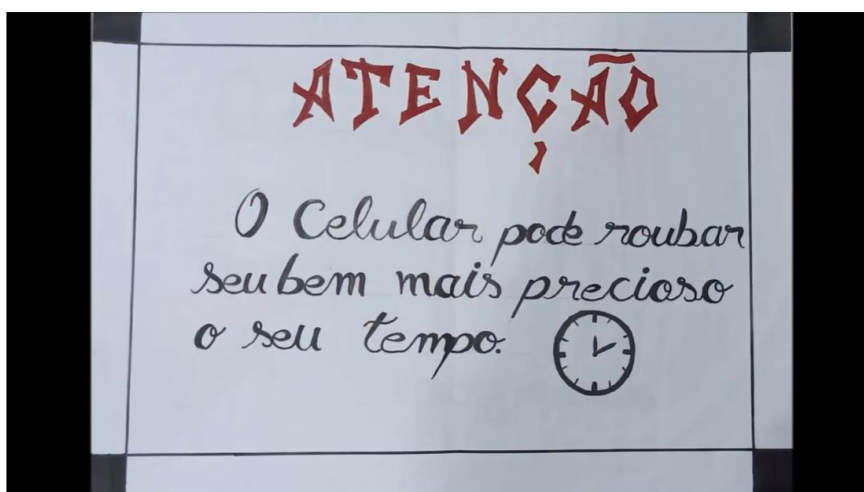 ATENÇÃO
O Celular pode roubar
seu bem mais precioso
o seu tempo.